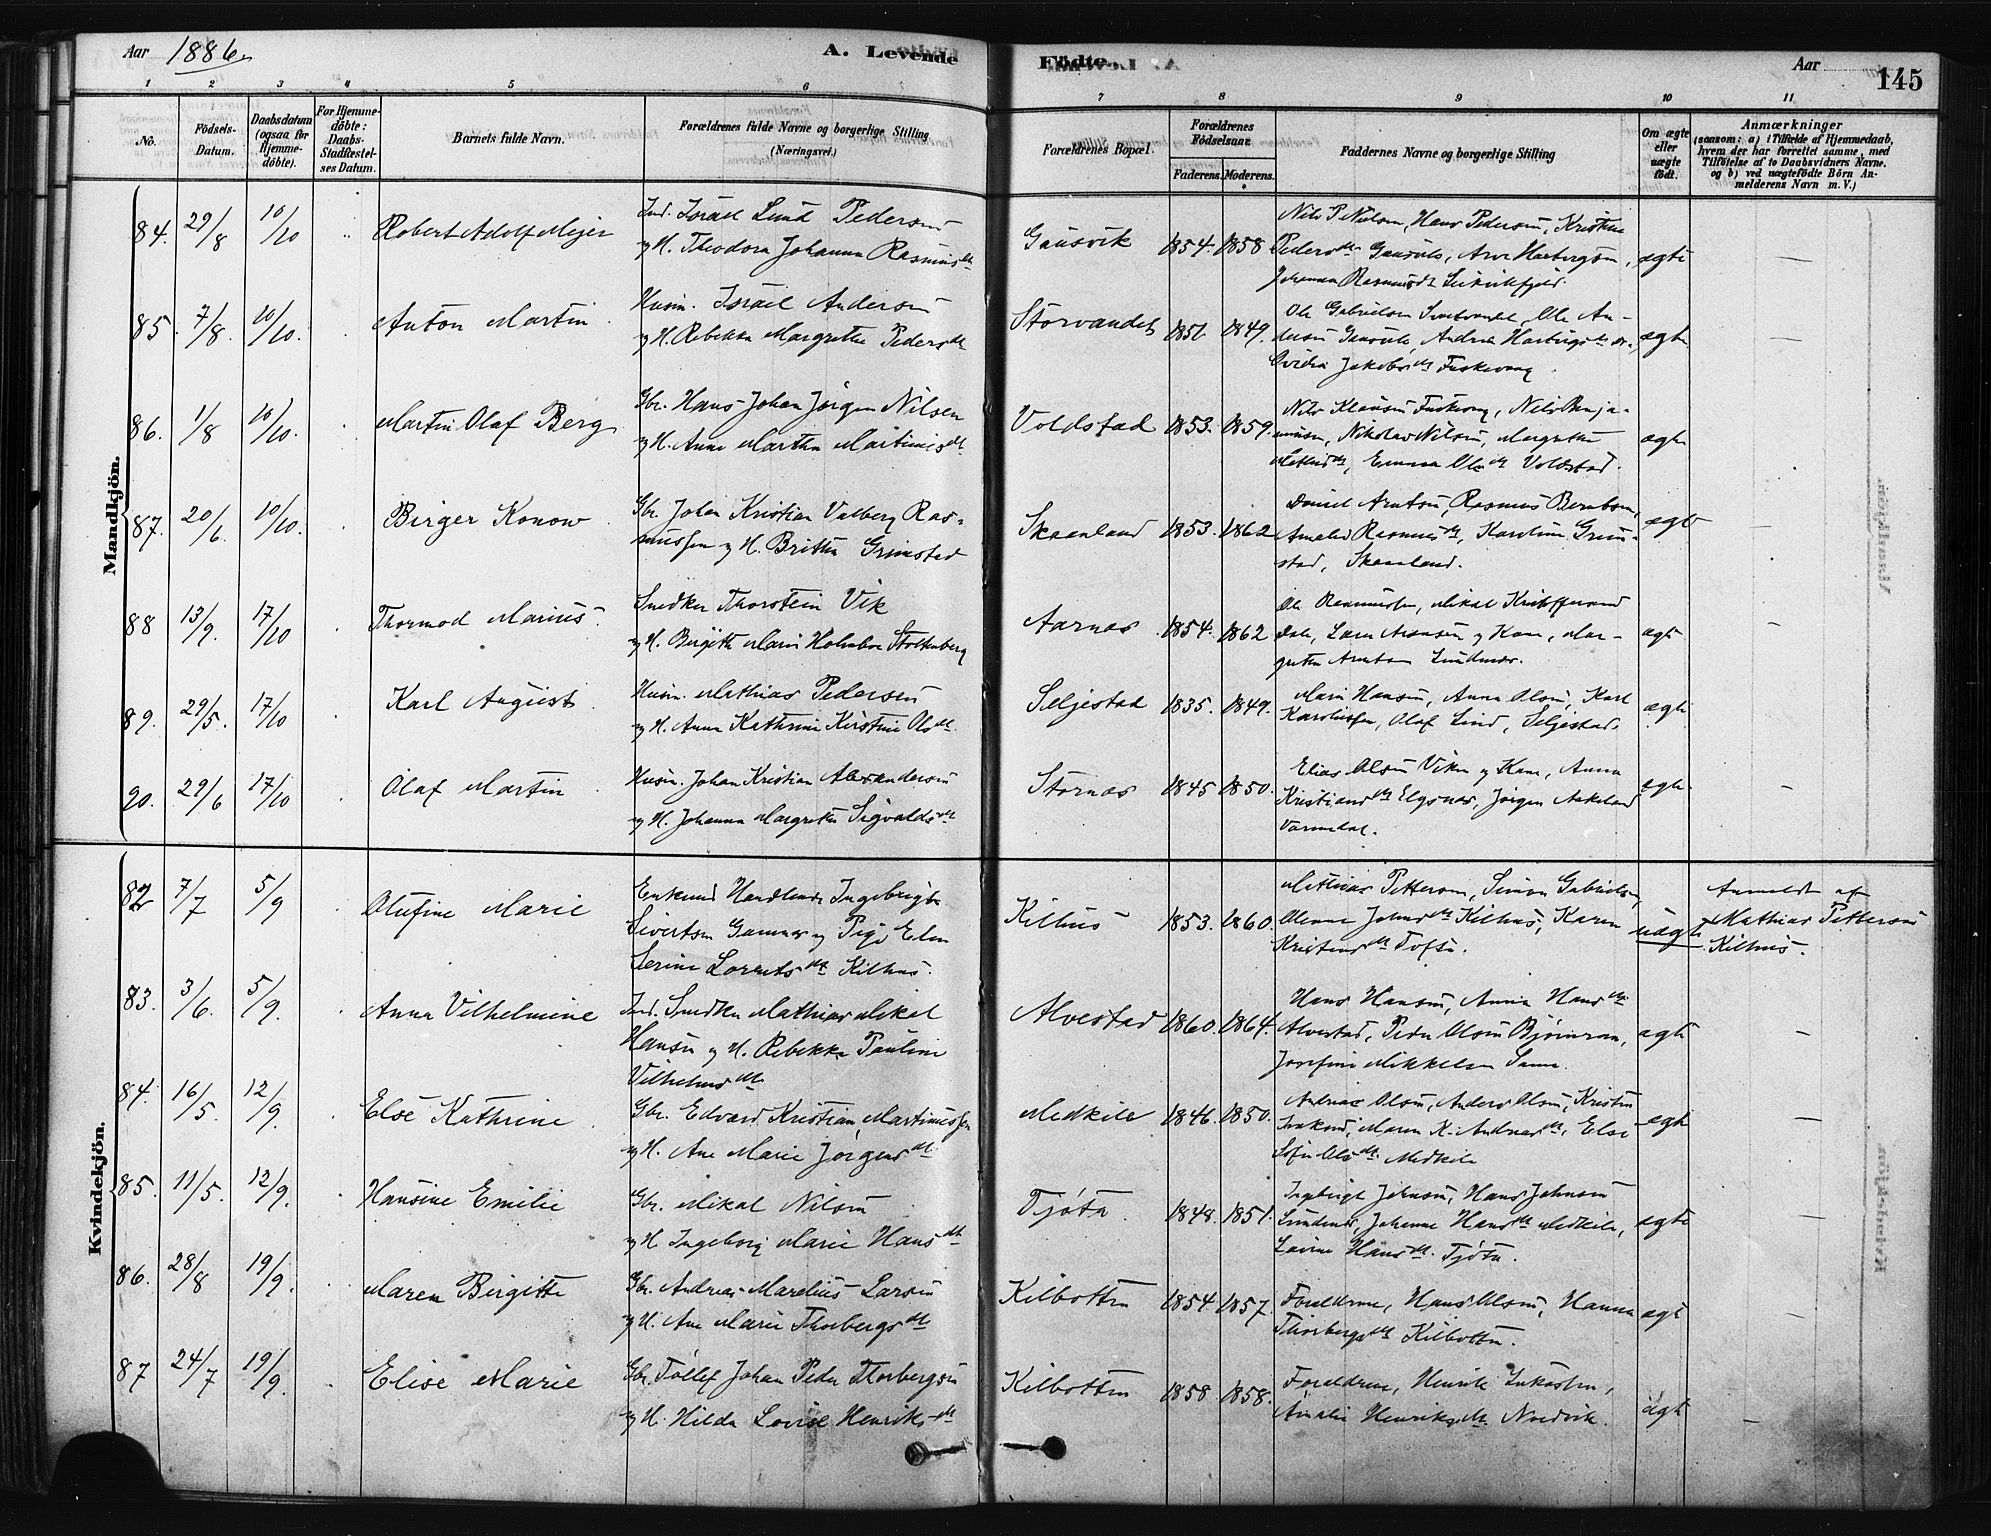 Aar 1886. A. Levende Födte. Aar 145
1 2 3 4 5 6 7 8 9 10 11
No. Födsels-Datum. Daabsdatum (ogsaa for Hjemmedöbte). For Hjemmedöbte: Daabs-Stadfæstelses Datum. Barnets fulde Navn. Forældrenes fulde Navne og borgerlige Stilling (Næringsvei.) Forældrenes Bopæl. Forældrenes Födselsaar. Faderens. Moderens. Faddernes Navne og borgerlige Stilling Om ægte eller uægte födt. Anmærkninger (saasom: a) i Tilfælde af Hjemmedaab, hvem der har forrettet samme, med Tilföielse af to Daabsvidners Navne, og b) ved uægtefödte Börn Anmelderens Navn m. V.)
Mandkjön.
84. 29/8 10/10 Robert Adolf Mejer Ind. Israel Lund Pedersen
og H. Theodora Johanna Rasmusdt
Gausvik 1854. 1858 Nils P Nielsen, Hans Pedersen, Kristine
Pedersdt Gausvik, Arne Hartvigsen,
Johanna Rasmusdt
ægte
85. 7/8. 10/10. Anton Martin Husm. Israel Andersen
og H. Rebekka Margrethe Pedersdt
Storvandet 1851 1849. Ole Gabrielsen Storvandet, Ole An-
dersen Gausvik, Andrea Hartvigsdt
Jakobsdt Fuskevaag
ægte
86. 1/8 10/10. Martin Olaf Berg Gbr. Hans Johan Jörgen Nilsen
og H. Anne Martha Martinusdt
Voldstad 1853. 1859. Nils Klausen Fuskevaag, Nils Benja-
minsen, Nikolai Nilsen, Margrethe
Emma Olsdt Voldstad.
ægte
87. 20/6 10/10. Birger Konow Gbr. Johan Kristian Valberg Ras-
mussen og H. Britha Grimstad
Skaanland 1853. 1862 Daniel Arntsen, Rasmus Berntsen,
Amalie Rasmusdt, Karoline Grim-
stad, Skaanland.
ægte
88 13/9. 17/10 Thormod Marius Snedker Thorstein Vik
og H. Birgitte Marie Holmboe Stoltenberg
Aarnes 1854. 1862 Ole Rasmussen, Mikal Kristoffersen
Dale, Lars Aronsen og Kone, Mar-
grethe Arntsen Lundenes.
ægte
89. 29/5. 17/10 Karl August Husm. Mathias Pedersen
og H. Anna Kathrine Kirstine Olsdt
Seljestad 1835. 1849. Marie Hansen, Anna Olsen, Karl
Karolinssen, Olaf Lind, Seljestad.
ægte
90. 29/6 17/10 Olaf Martin Husm. Johan Kristian Alexandersen
og H. Johanna Margrethe Sigvaldsdt
Stornes 1845 1850. Elias Olsen Viken og Kone, Anna
Kristiansdt Elgsnes, Jörgen Aakeland
Varmedal.
ægte
Kvindekjön.
82 7/7 5/9 Olufine Marie Enkemd Handlende Ingebrigt
Sivertsen Gamnes og Pige Elen
Serine Lorentsdt Kilhus.
Kilhus 1853. 1860. Mathias Pettersen, Simon Gabrielsen,
Johnsdt Kilhus, Karen
Kristensdt Toften.
uægte Anmeldt af
Mathias Pettersen
Kilhus.
83. 3/6. 5/9. Anna Vilhelmine Ind. Snedker Mathias Mikal
Hansen og H. Rebekka Pauline
Vilhelmsdt
Alvestad 1860. 1864. Hans Hansen, Anna Hansdt
Alvestad, Peder Olsen Bjönraa,
Josefine Mikkelsen Sama.
ægte
84. 16/5. 12/9. Else Kathrine Gbr. Edvard Kristian Martinussen
og H. Ane Marie Jörgensdt
Medkile 1846. 1850. Andreas Olsen, Anders Olsen, Kristen
Maren K. Andreasdt, Else
Sofie Olsdt Medkile
ægte
85. 11/5. 12/9. Hansine Emilie Gbr. Mikal Nilsen
og H Ingeborg Marie Hansdt
Tjöta 1848. 1851. Ingebrigt Johnsen, Hans Johnsen
Lundenes, Johanne Hansdt Medkile,
Lovise Hansdt. Tjöta.
ægte
86. 28/8 19/9. Maren Birgitte Gbr. Andreas Marelius Larsen
og H. Ane Marie Thorbergsdt
Kilbotten 1854. 1857. Forældrene, Hans Olsen, Hanna
Thorbergsdt Kilbotten.
ægte
87 24/7 19/9. Elise Marie Gbr. Tollef Johan Peder Thorbergsen
og H. Hilda Lovise Henriksdt
Kilbotten 1858 1858. Forældrene, Henrik Lukassen,
Amalie Henriksdt Nordvik.
ægte